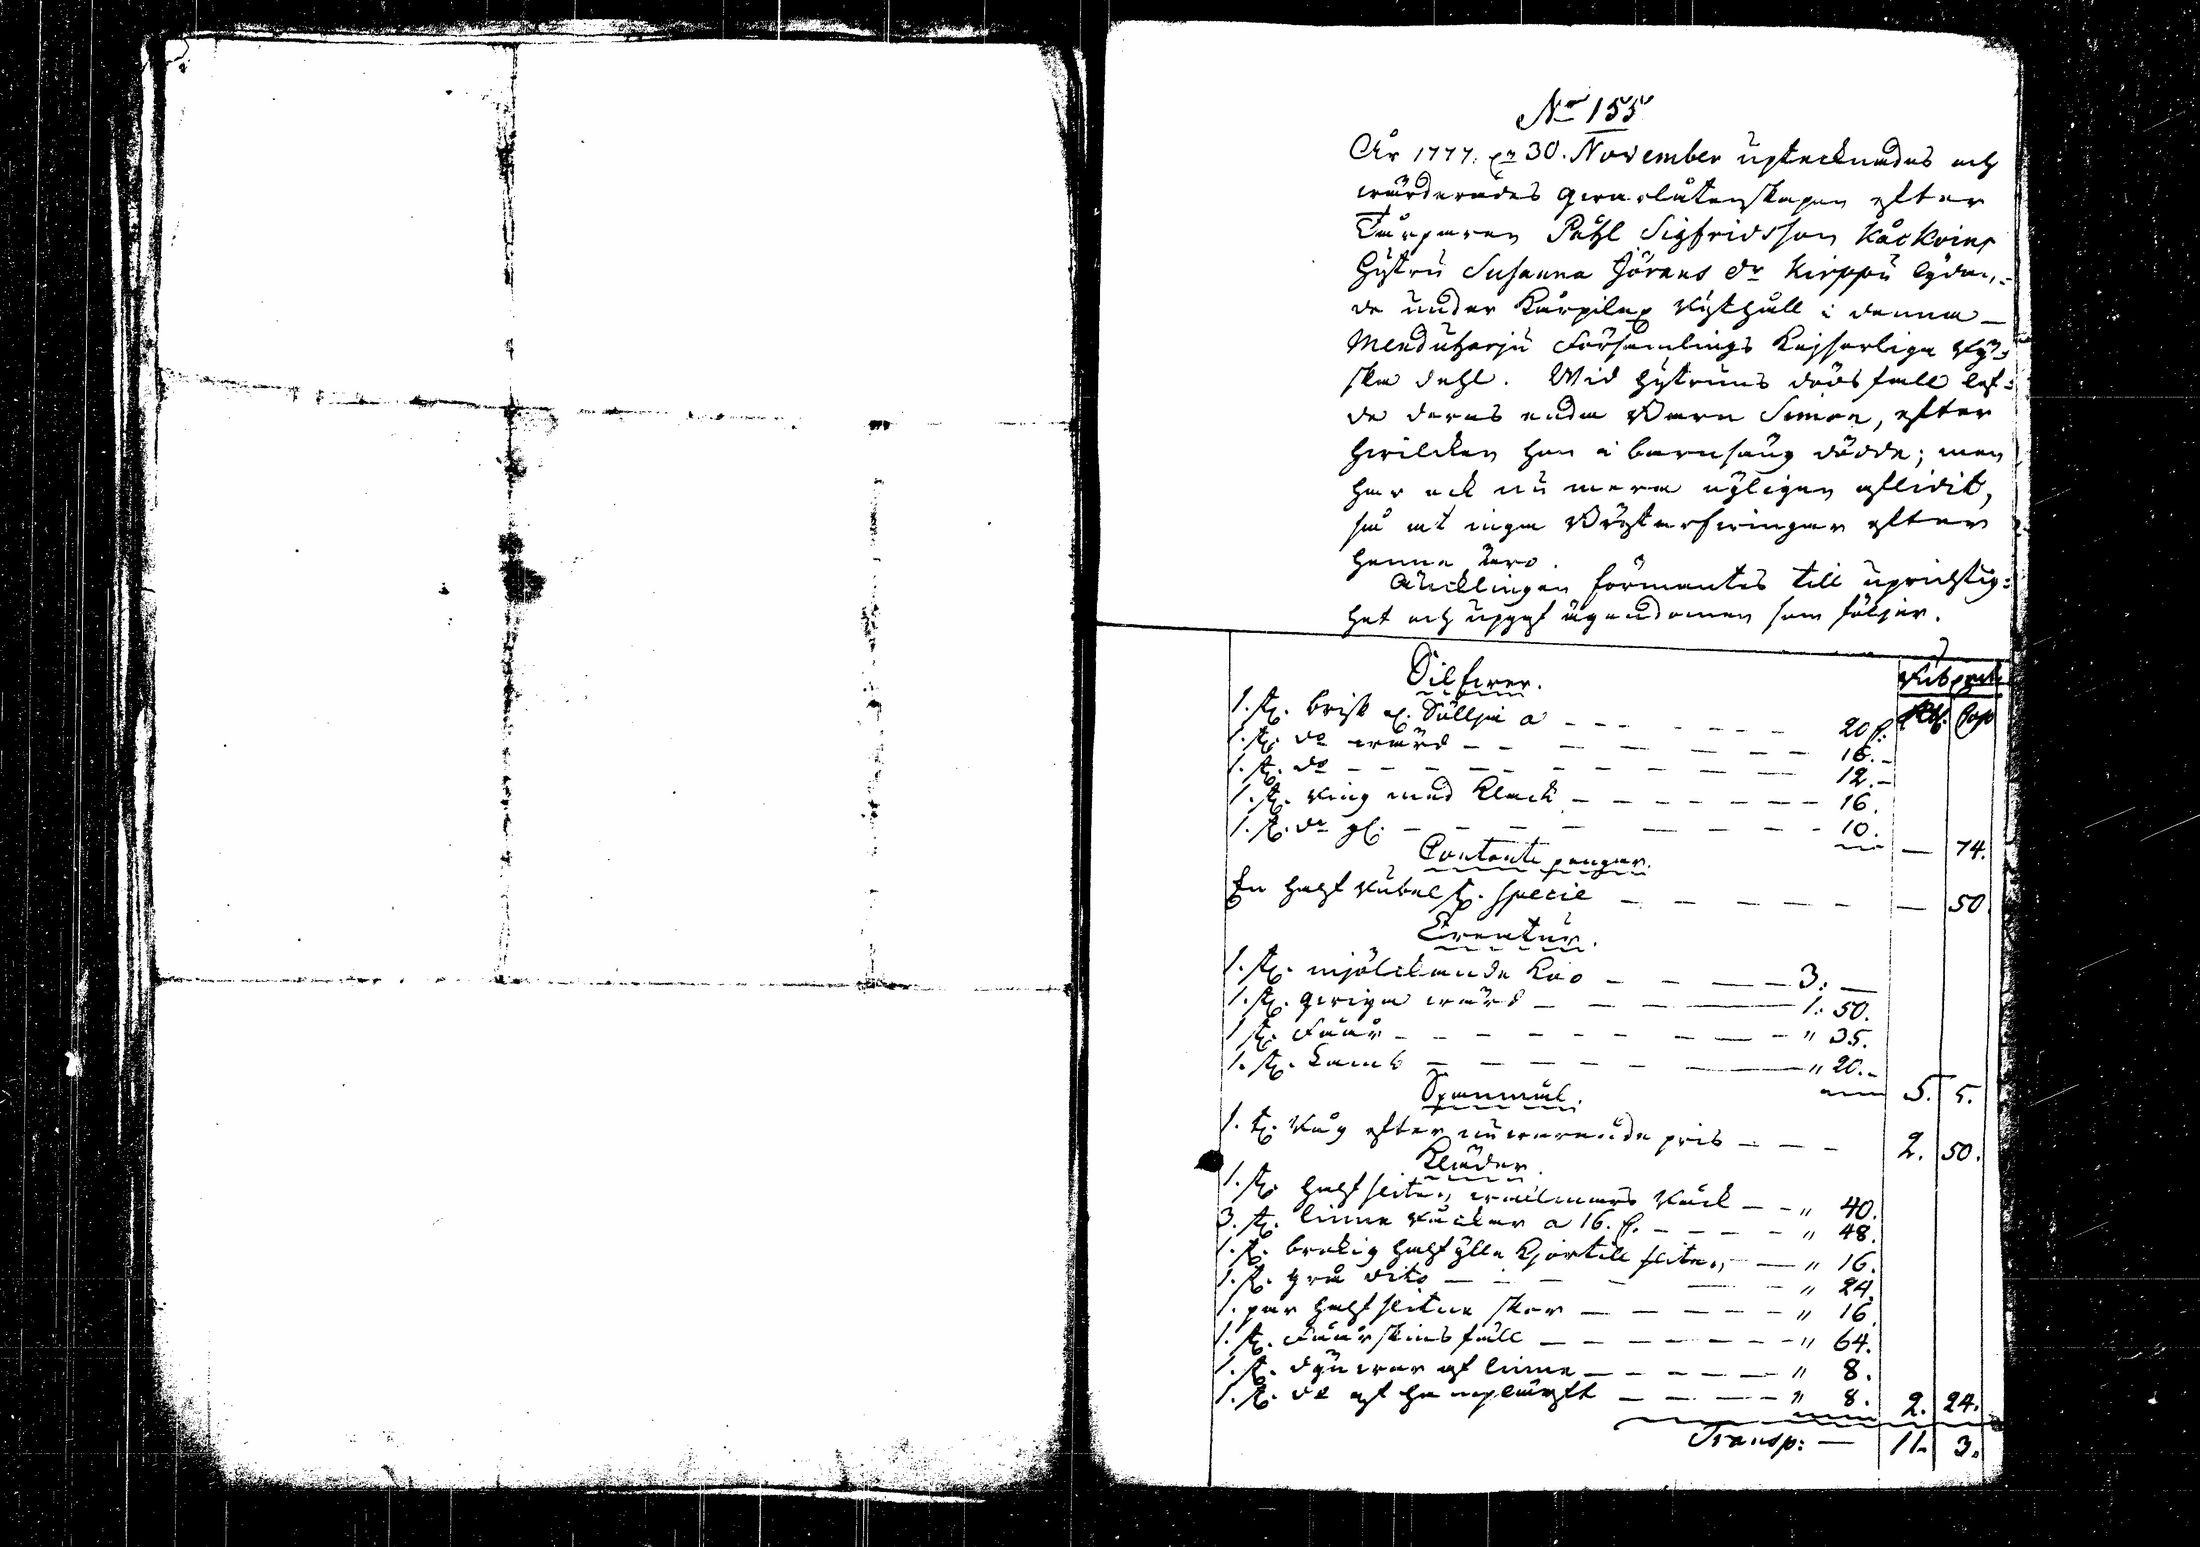 No 155
År 1777. den 30. November uptecknades och
wärderades qwarlåtenskapen efter
Torparen Påhl Sigfridsson Kåckoins
hustru Susanna Jörans dr Kirppu lydan-
de under Kärpilex Rusthåll i denna
Mendüharju Församlings Kejserliga Ry-
ska dehl. Wid hustruns dödsfall lef-
de deras enda Barn Simon, efter
hwilcken hon i barnsäng dödde; men
har ock nu mera nyligen aflidit,
så at inga Bröstarfwingar efter
henne äro.
Änklingen förmantes till uprichtig-
het och uppgaf ägendomen som följer.
Rub. pntr
Rub. Cop
Silfwer.
1. st. brisk el. Sållja a - - - 20 k.
1. st. do wärd - - - 16.-
1. st. do - - - 12.-
1. st. Ring med Klack - - - 16.
1. st. do gl. - - - 10. — 74.
Contante pengar.
En half Rubel st. Specie - - - — 50.
Creatur.
1. st. mjölckande Koo - - - 3: —
1. st. qwiga wärd - - - 1: 50.
1 st. Fåår - - - " 35.
1. st. Lamb - - - " 20.- 5. 5.
Spanmål.
1. t. Råg efter nuwarande pris - - - 2. 50.
Kläder.
1. st. half sliten wallmars Råck - - " 40.
3. st. linne Råckar a 16. k. - - - " 48.
1. st. brokig halfylle Kjortell sliten - " 16.
1. st. grå dito - - - " 24.
1. par half slitna skor - - - " 16.
1. st. Fåårskins fäll - - - " 64.
1. st. dynwar af linne - - - " 8.
1. st. do af hamplärft - - - " 8. 2. 24.
Transp: — 11. 3.